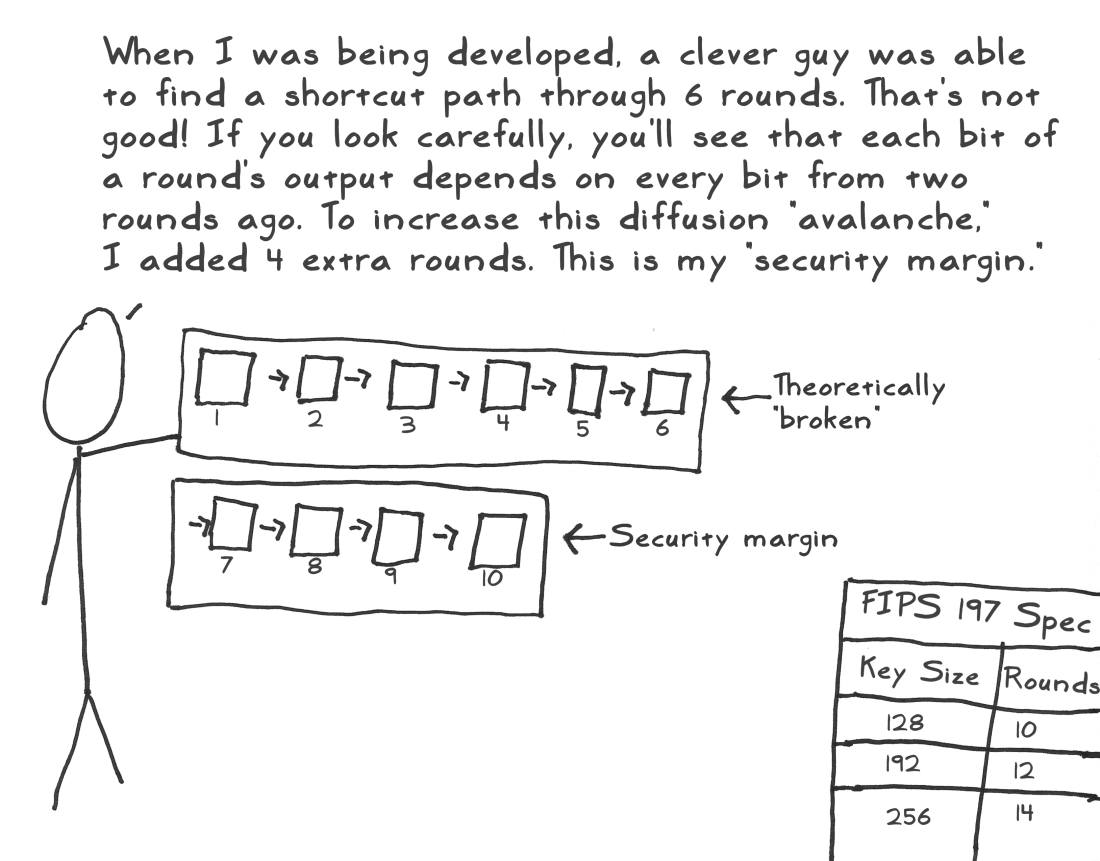 When I was being developed, a clever guy was able
to find a shortcut path through 6 rounds. That's not
good! If you look carefully, you'll see that each bit of
a round's output depends on every bit from two
rounds ago. To increase this diffusion "avalanche,"
I added 4 extra rounds. This is my "security margin."
→ → → → →
1 2 3 4 5 6
← Theoretically
"broken"
→ → → →
7 8 9 10
← Security margin
FIPS 197 Spec
Key Size Rounds
128 10
192 12
256 14